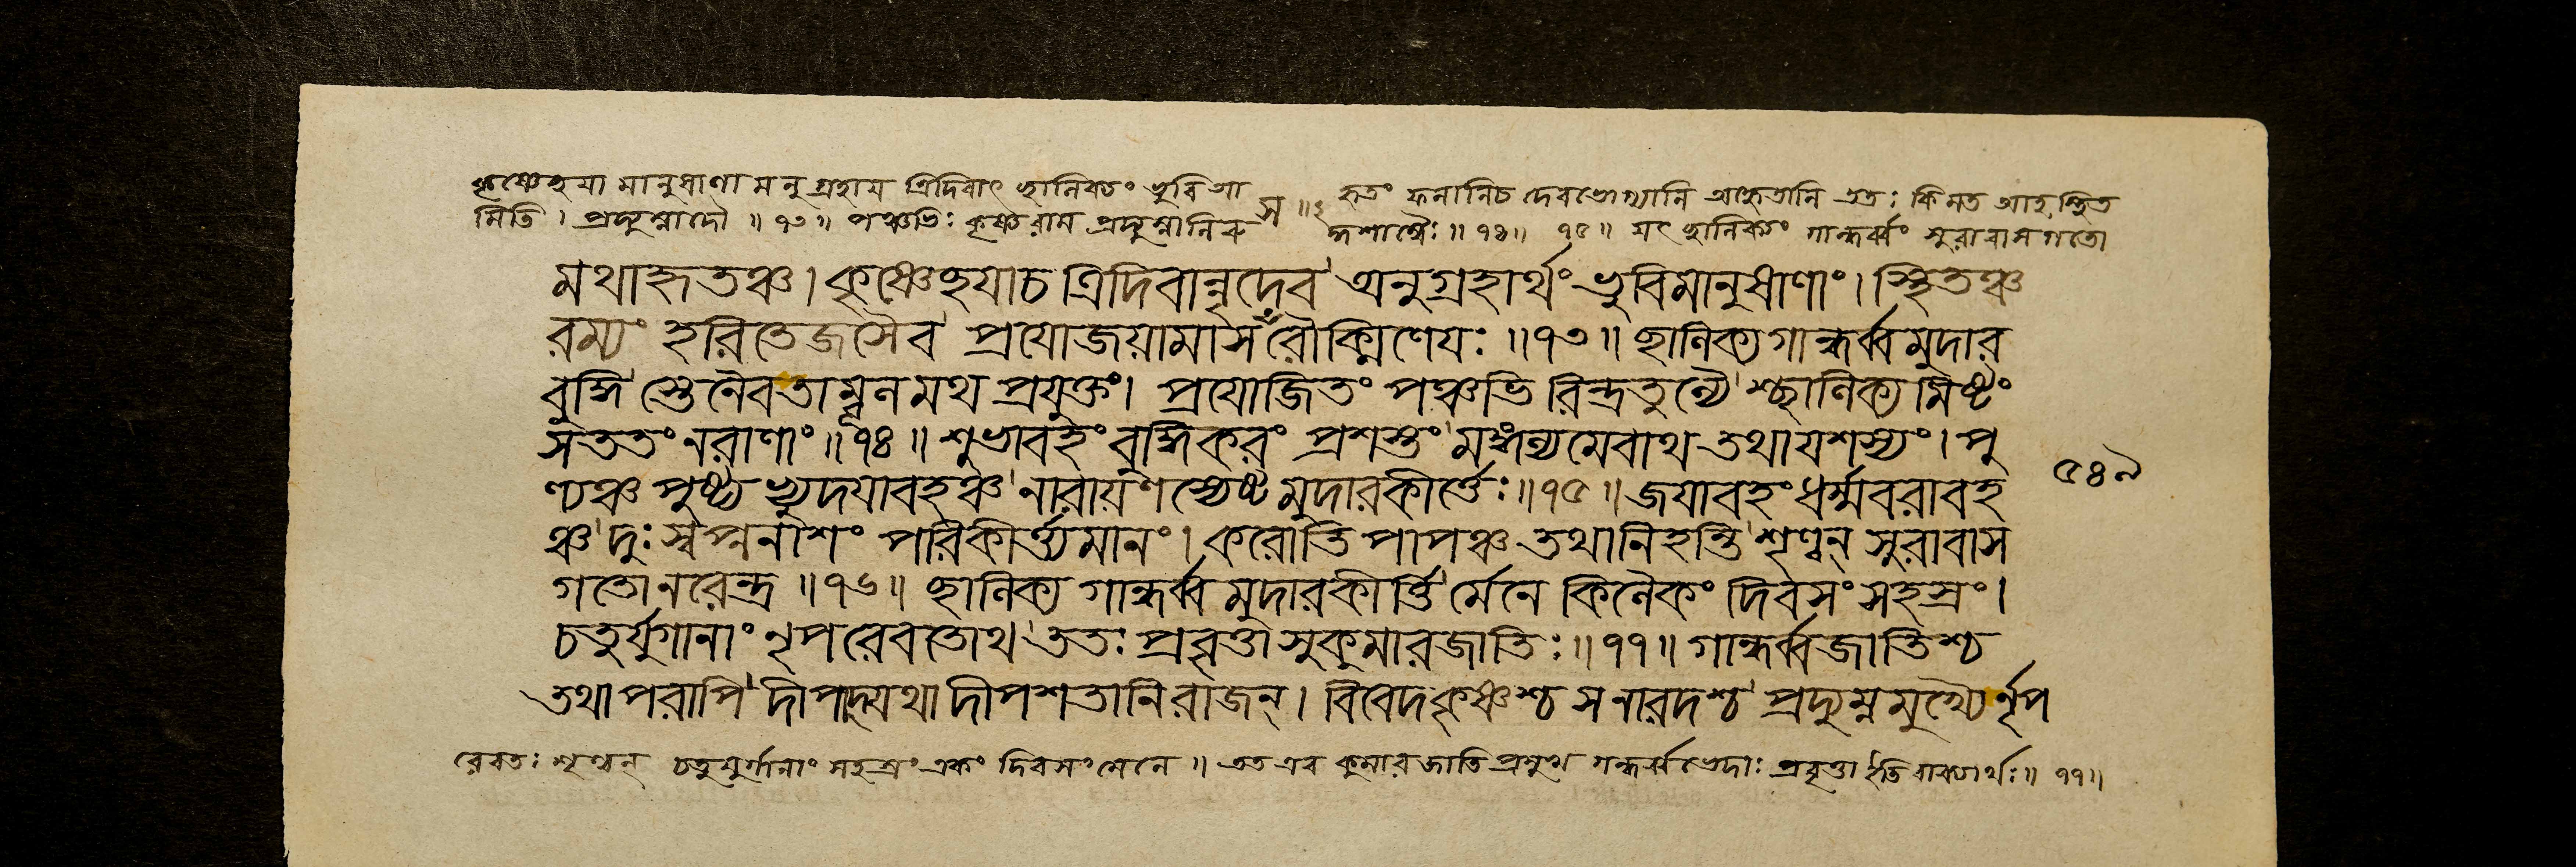 কৃষ্ণেচ্ছযা মানুষাণামনুগ্রহায ত্রিদিবাৎ ছানিক্যং ভুবি আ
হৃতং ফলানিচ দেবভোগ্যানি অদ্ভুতানি এত: কিমত আহ স্থিত
মিতি। প্রদ্যুম্নাদৌ॥ ৭৩॥ পঞ্চভি: কৃষ্ণরাম প্রদ্যুম্নানিরু
দ্ধশাম্বৈ:॥ ৭৪॥ ৭৫॥ যৎ ছানিক্যং গান্ধর্ব্বং সুরাবাসগতো
মথাহৃতঞ্চ। কৃষ্ণেচ্ছযাচ ত্রিদিবান্নৃদেব অনুগ্রহার্থং ভুবিমানুষাণাং। স্থিতঞ্চ
রম্যং হরিতেজসৈব প্রযোজয়ামাস রৌক্মিণেয:॥৭৩॥ ছানিক্যগান্ধর্ব্বমুদার
বুদ্ধি স্তেনৈবতাম্বূলমথ প্রযুক্তং। প্রযোজিতং পঞ্চভি রিন্দ্রতুল্যৈ শ্ছানিক্য মিষ্টং
সততং নরাণাং॥৭৪॥ শুভাবহং বৃদ্ধিকরং প্রশস্তং মঙ্গল্যমেবাথ তথাযশস্যং। পু
ণ্যঞ্চ পুষ্ট্য ভ্যুদযাবহঞ্চ নারায়ণস্যেষ্ট মুদারকীর্ত্তে:॥৭৫॥ জযাবহং ধর্ম্মবরাবহ
ঞ্চ দু:স্বপ্ননাশং পরিকীর্ত্ত্যমানং। করোতি পাপঞ্চ তথানিহন্তি শৃণ্বন্ সুরাবাস
৫৪৯
গতোনরেন্দ্র॥৭৬॥ ছানিক্য গান্ধর্ব্ব মুদারকীর্ত্তি র্মেনে কিলৈকং দিবসং সহস্রং।
চতুর্যুগানাং নৃপ রেবতোথ তত: প্রবৃত্তা সুকুমারজাতি:॥৭৭॥ গান্ধর্ব্বজাতিশ্চ
তথাপরাপি দীপাদ্যথা দীপশতানি রাজন্। বিবেদকৃষ্ণশ্চ সনারদশ্চ প্রদ্যুম্নমুখ্যৈ র্নৃপ
রেবত: শৃণ্বন্ চতুর্যুগানাং সহস্রং একং দিবসং মেনে॥ তত এব কুমারজাতি প্রমুখ গন্ধর্ব্বভেদা: প্রবৃত্তা ইতি বাক্যার্থ:॥ ৭৭॥